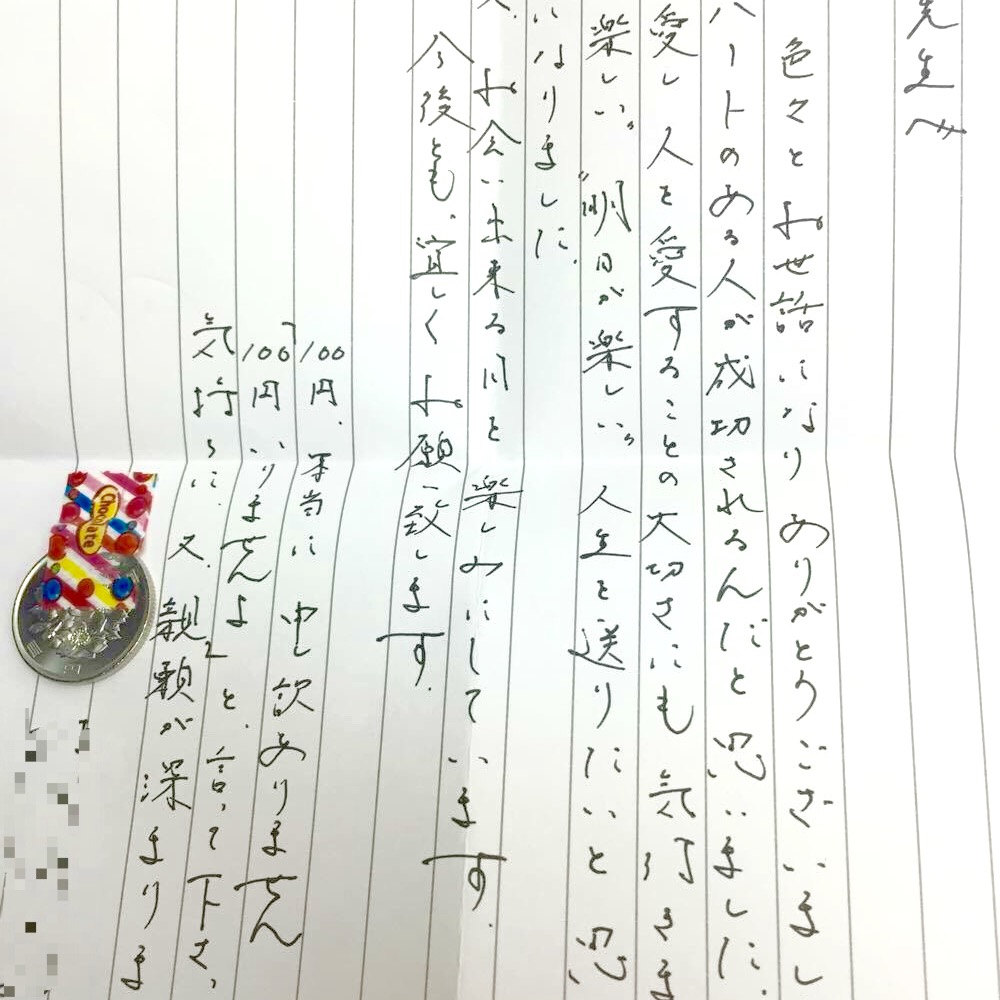 先生へ
色々と お世話になり ありがとうございまし
ハートのある人が成功されるんだと 思いました.
愛し 人を愛することの大切さにも 気付きま
楽しい〟 〝明日が楽しい〟 人生を送りたいと 思
いなりました.
お会い出来る日を 楽しみにしています.
今後とも、宜しく お願い致します.
100円、本当に 申し訳ありません
「100円いりませんよ」と、言って下さ
気持ちに、又、親頼が深まりま
Chocolate
円